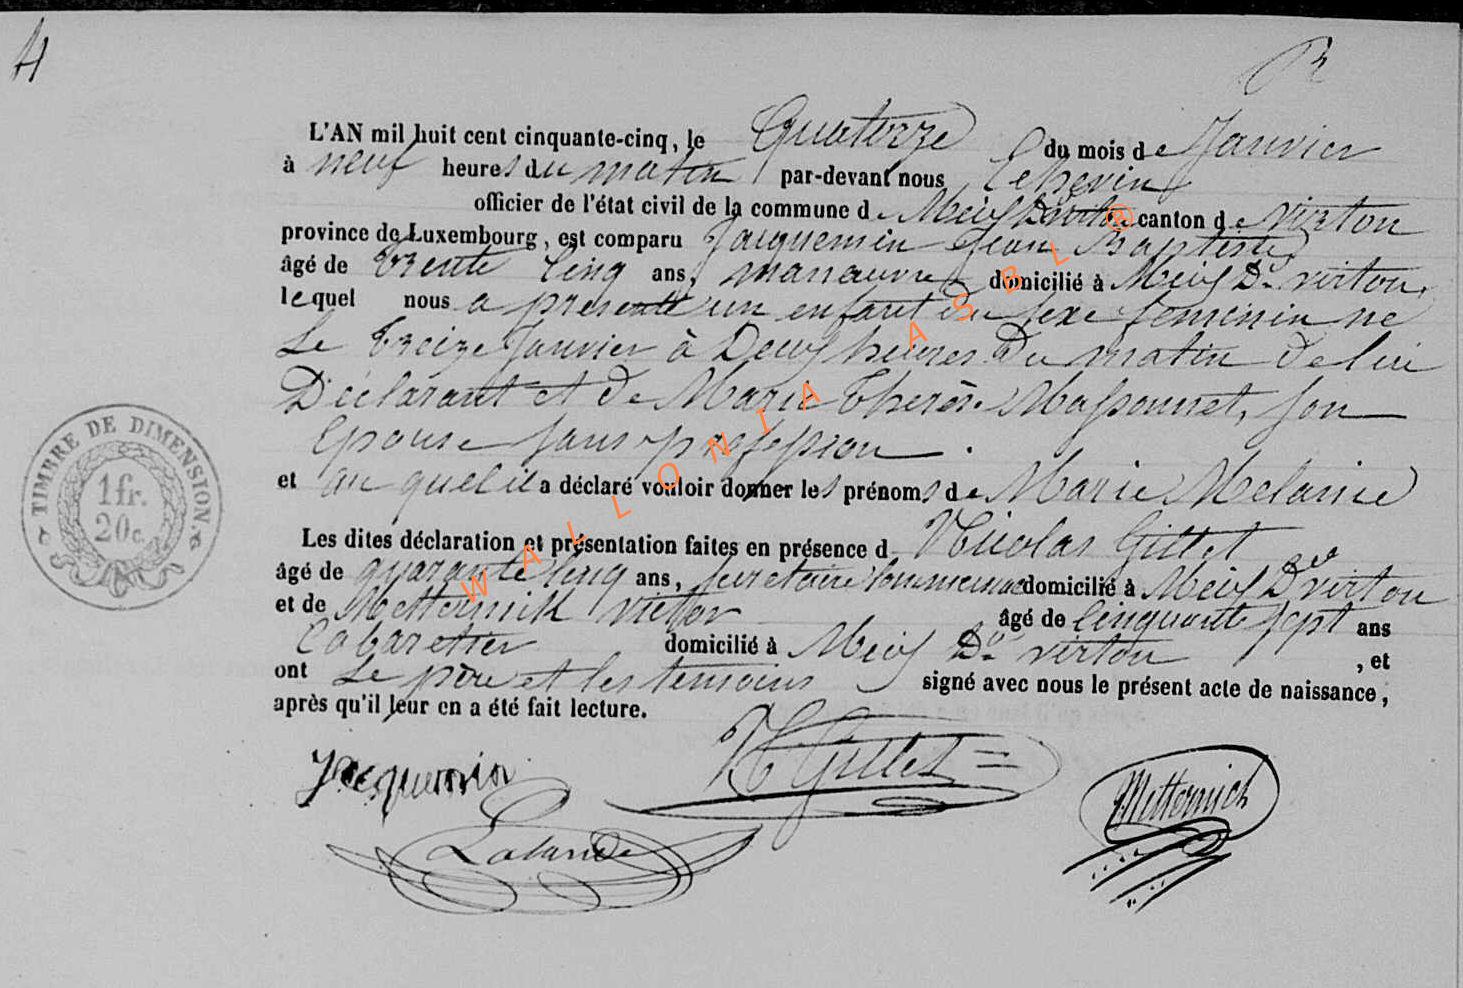 4
L'AN mil huit cent cinquante-cinq, le Quatorze du mois de Janvier
à neuf heures du matin par-devant nous Echevin
officier de l'état civil de la commune d Meix Dvt Virton canton de virton
province de Luxembourg, est comparu Jacquemin Jean Baptiste
âgé de trente Cinq ans, manœuvre domicilié à Meix Dt virton,
lequel nous a présenté un enfant du sexe feminin né
Le treize Janvier à Deux heures Du matin de lui
Déclarant et de Marie Therèse Massonnet, son
Epouse sans profession.
et au quel il a déclaré vouloir donner les prénoms de Marie Melanie
Les dites déclaration et présentation faites en présence d Nicolas Gillet
âgé de quarante Cinq ans, secretaire Communal domicilié à Meix Dt virton
et de Metternick Victor âgé de Cinquante sept ans
Cabaretier domicilié à Meix Dt virton, et
ont Le père et les temoins signé avec nous le présent acte de naissance,
après qu'il leur en a été fait lecture.
Jacquemin
N Gillet
Metternich
Lalande
TIMBRE DE DIMENSION.
1fr.
20c.
WALLONIA ASBL ®